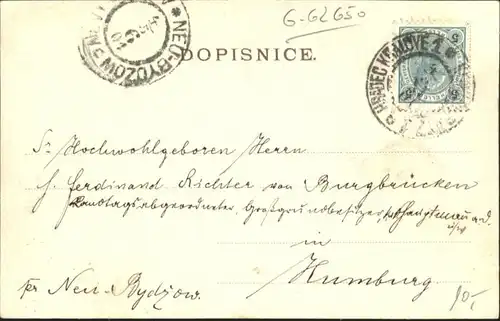 G-62650
NEU-BYDŽOW
DOPISNICE.
HRADEC KRÁLOVÉ 1
5 5
Sr Hochwohlgeboren Herrn
J. Ferdinand Richter von Burgbrücken
Landtagsabgeordneter, Großgrundbesitzer, Hauptmann a.d.
in
Humburg
pr Neu-Bydžow.
90,-